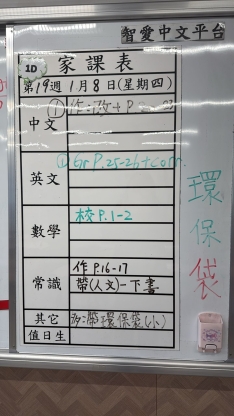 智愛中文平台
1D
家課表
第19週 1月8日(星期四)
中文
①作:改+P.2
英文
①Gr P.25-26+corr.
數學
校P.1-2
常識
作P.16-17
帶(人文)一下書
其它
多帶環保袋(小)
值日生
環保袋